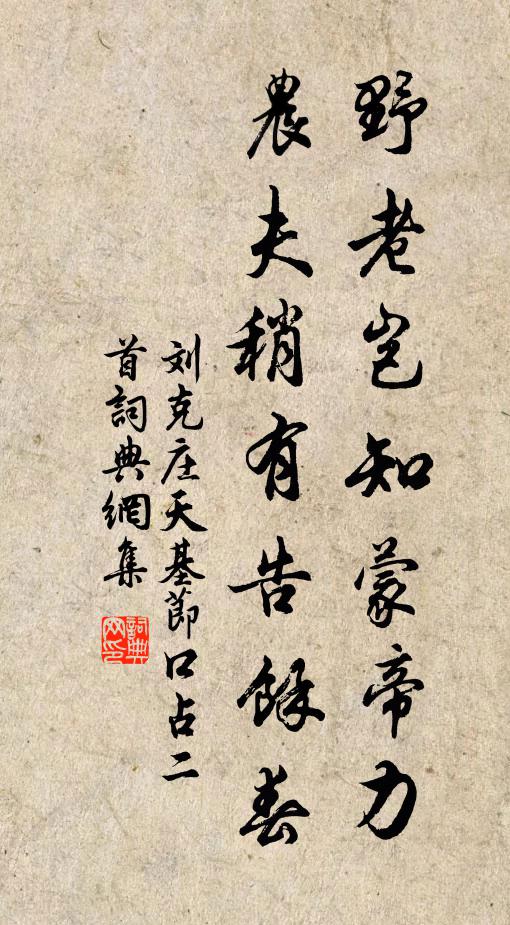 野老岂知蒙帝力
農夫稍有告餘春
刘克庄天基節口占二
首詞典網集
詞典网印